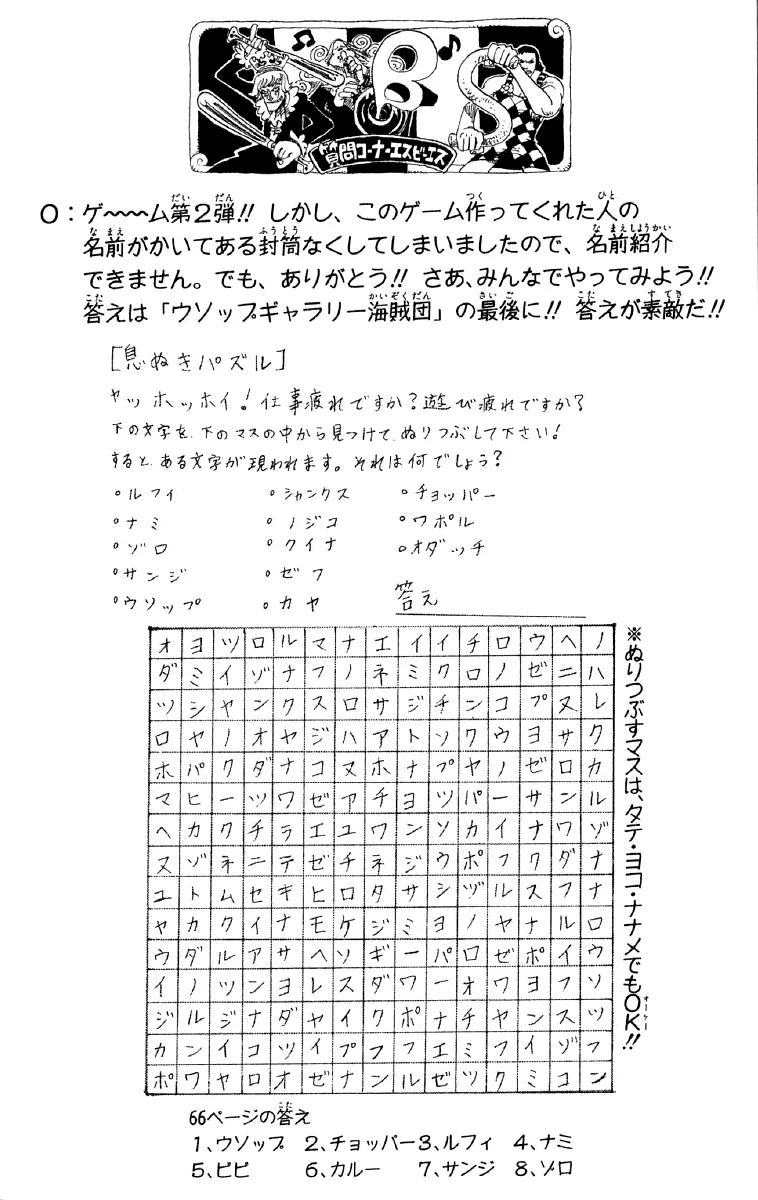 BS
質問コーナー・エスビーエス
O：ゲ〜〜〜ム第２弾!! しかし、このゲーム作ってくれた人の
名前がかいてある封筒なくしてしまいましたので、名前紹介
できません。でも、ありがとう!! さあ、みんなでやってみよう!!
答えは「ウソップギャラリー海賊団」の最後に!! 答えが素敵だ!!
[息ぬきパズル]
ヤッホッホイ！仕事疲れですか？遊び疲れですか？
下の文字を、下のマスの中から見つけて、ぬりつぶして下さい！
すると、ある文字が現われます。それは何でしょう？
◦ルフィ ◦シャンクス ◦チョッパー
◦ナミ ◦ノジコ ◦ワポル
◦ゾロ ◦クイナ ◦オダッチ
◦サンジ ◦ゼフ
◦ウソップ ◦カヤ 答え
オヨツロルマナエイイチロウヘノ
ダミイゾナフノネミクロノゼニハ
ツシヤンクスロサジチンコプヌレ
ロヤノオヤジハアトソクウヨサク
ホパクダナコヌホナプヤノゼロカ
マヒーツワゼアチヨツパーサンル
ヘカクチラエユワンソカイナワゾ
ヌゾネニテゼチネジウポフクダナ
ユトムセキヒロタサシヅルスフナ
ヤカクイナモケジミヨノヤナルロ
ウダルアサヘソギーパロゼポイウ
イノツンヨレスダワーオワヨフソ
ジルジナダヤイクポナチヤンスツ
カンイコツイプフフエミフイゾフ
ポワヤロオゼナンルゼツクミコン
※ぬりつぶすマスは、タテ・ヨコ・ナナメでもOK!!
66ページの答え
1、ウソップ 2、チョッパー 3、ルフィ 4、ナミ
5、ビビ 6、カルー 7、サンジ 8、ゾロ